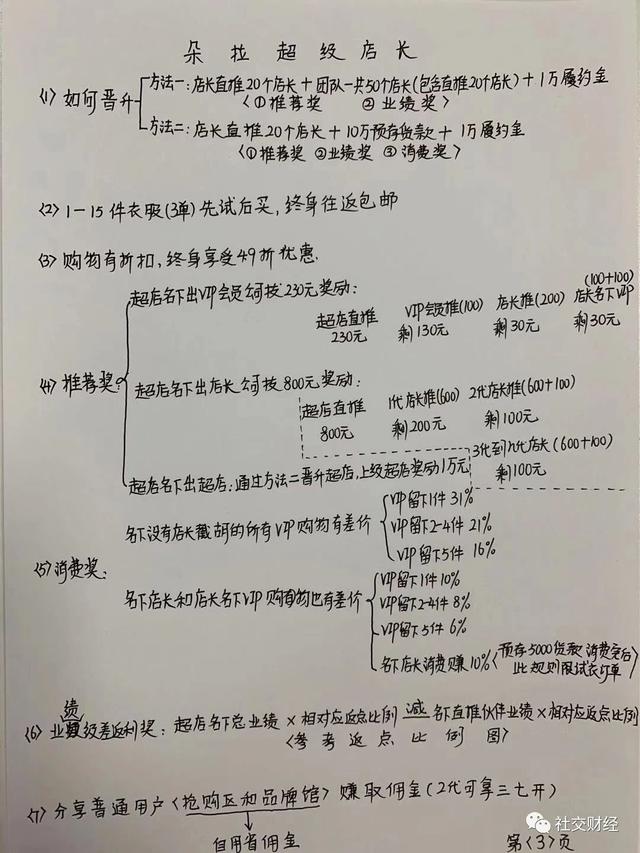 朵拉超级店长
<1> 如何晋升
方法一:店长直推20个店长+团队一共50个店长(包含直推20个店长)+1万履约金
<①推荐奖 ②业绩奖>
方法二:店长直推20个店长+10万预存货款+1万履约金
<①推荐奖 ②业绩奖 ③消费奖>
<2> 1-15件衣服(3单)先试后买,终身往返包邮
<3> 购物有折扣,终身享受49折优惠.
<4> 推荐奖:
超店名下出VIP会员公司按230元奖励:
超店直推 VIP会员推(100) 店长推(200) (100+100)店长名下VIP
230元 剩130元 剩30元 剩30元
超店名下出店长公司按800元奖励:
超店直推 1代店长推(600) 2代店长推(600+100)
800元 剩200元 剩100元
3代到九代店长(600+100)
剩100元
超店名下出超店:通过方法二晋升超店,上级超店奖励1万元
<5> 消费奖:
名下没有店长截胡的所有VIP购物有差价
VIP留下1件31%
VIP留下2-4件21%
VIP留下5件16%
名下店长和店长名下VIP购物也有差价
VIP留下1件10%
VIP留下2-4件8%
VIP留下5件6%
名下店长消费赚10%<预存5000货款消费完后
此规则限试衣订单>
<6> 业绩级差返利奖:超店名下总业绩×相对应返点比例减名下直推伙伴业绩×相对应返点比例
<参考返点比例图>
<7> 分享普通用户<抢购区和品牌馆>赚取佣金(2代可拿三七开)
自用省佣金
第<3>页
社交财经